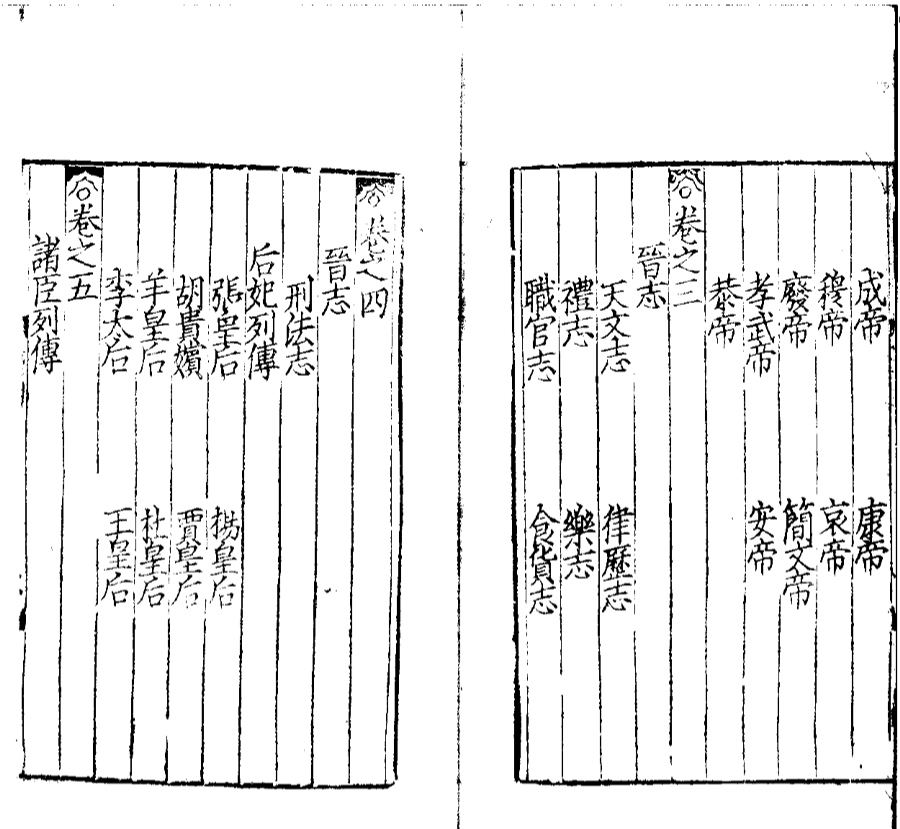 成帝　康帝
穆帝　哀帝
廢帝　簡文帝
孝武帝　安帝
恭帝
卷之三
晉志
天文志　律歷志
禮志　樂志
職官志　食貨志
卷之四
晉志
刑法志
后妃列傳
張皇后　楊皇后
胡貴嬪　賈皇后
羊皇后　杜皇后
李太后　王皇后
卷之五
諸臣列傳